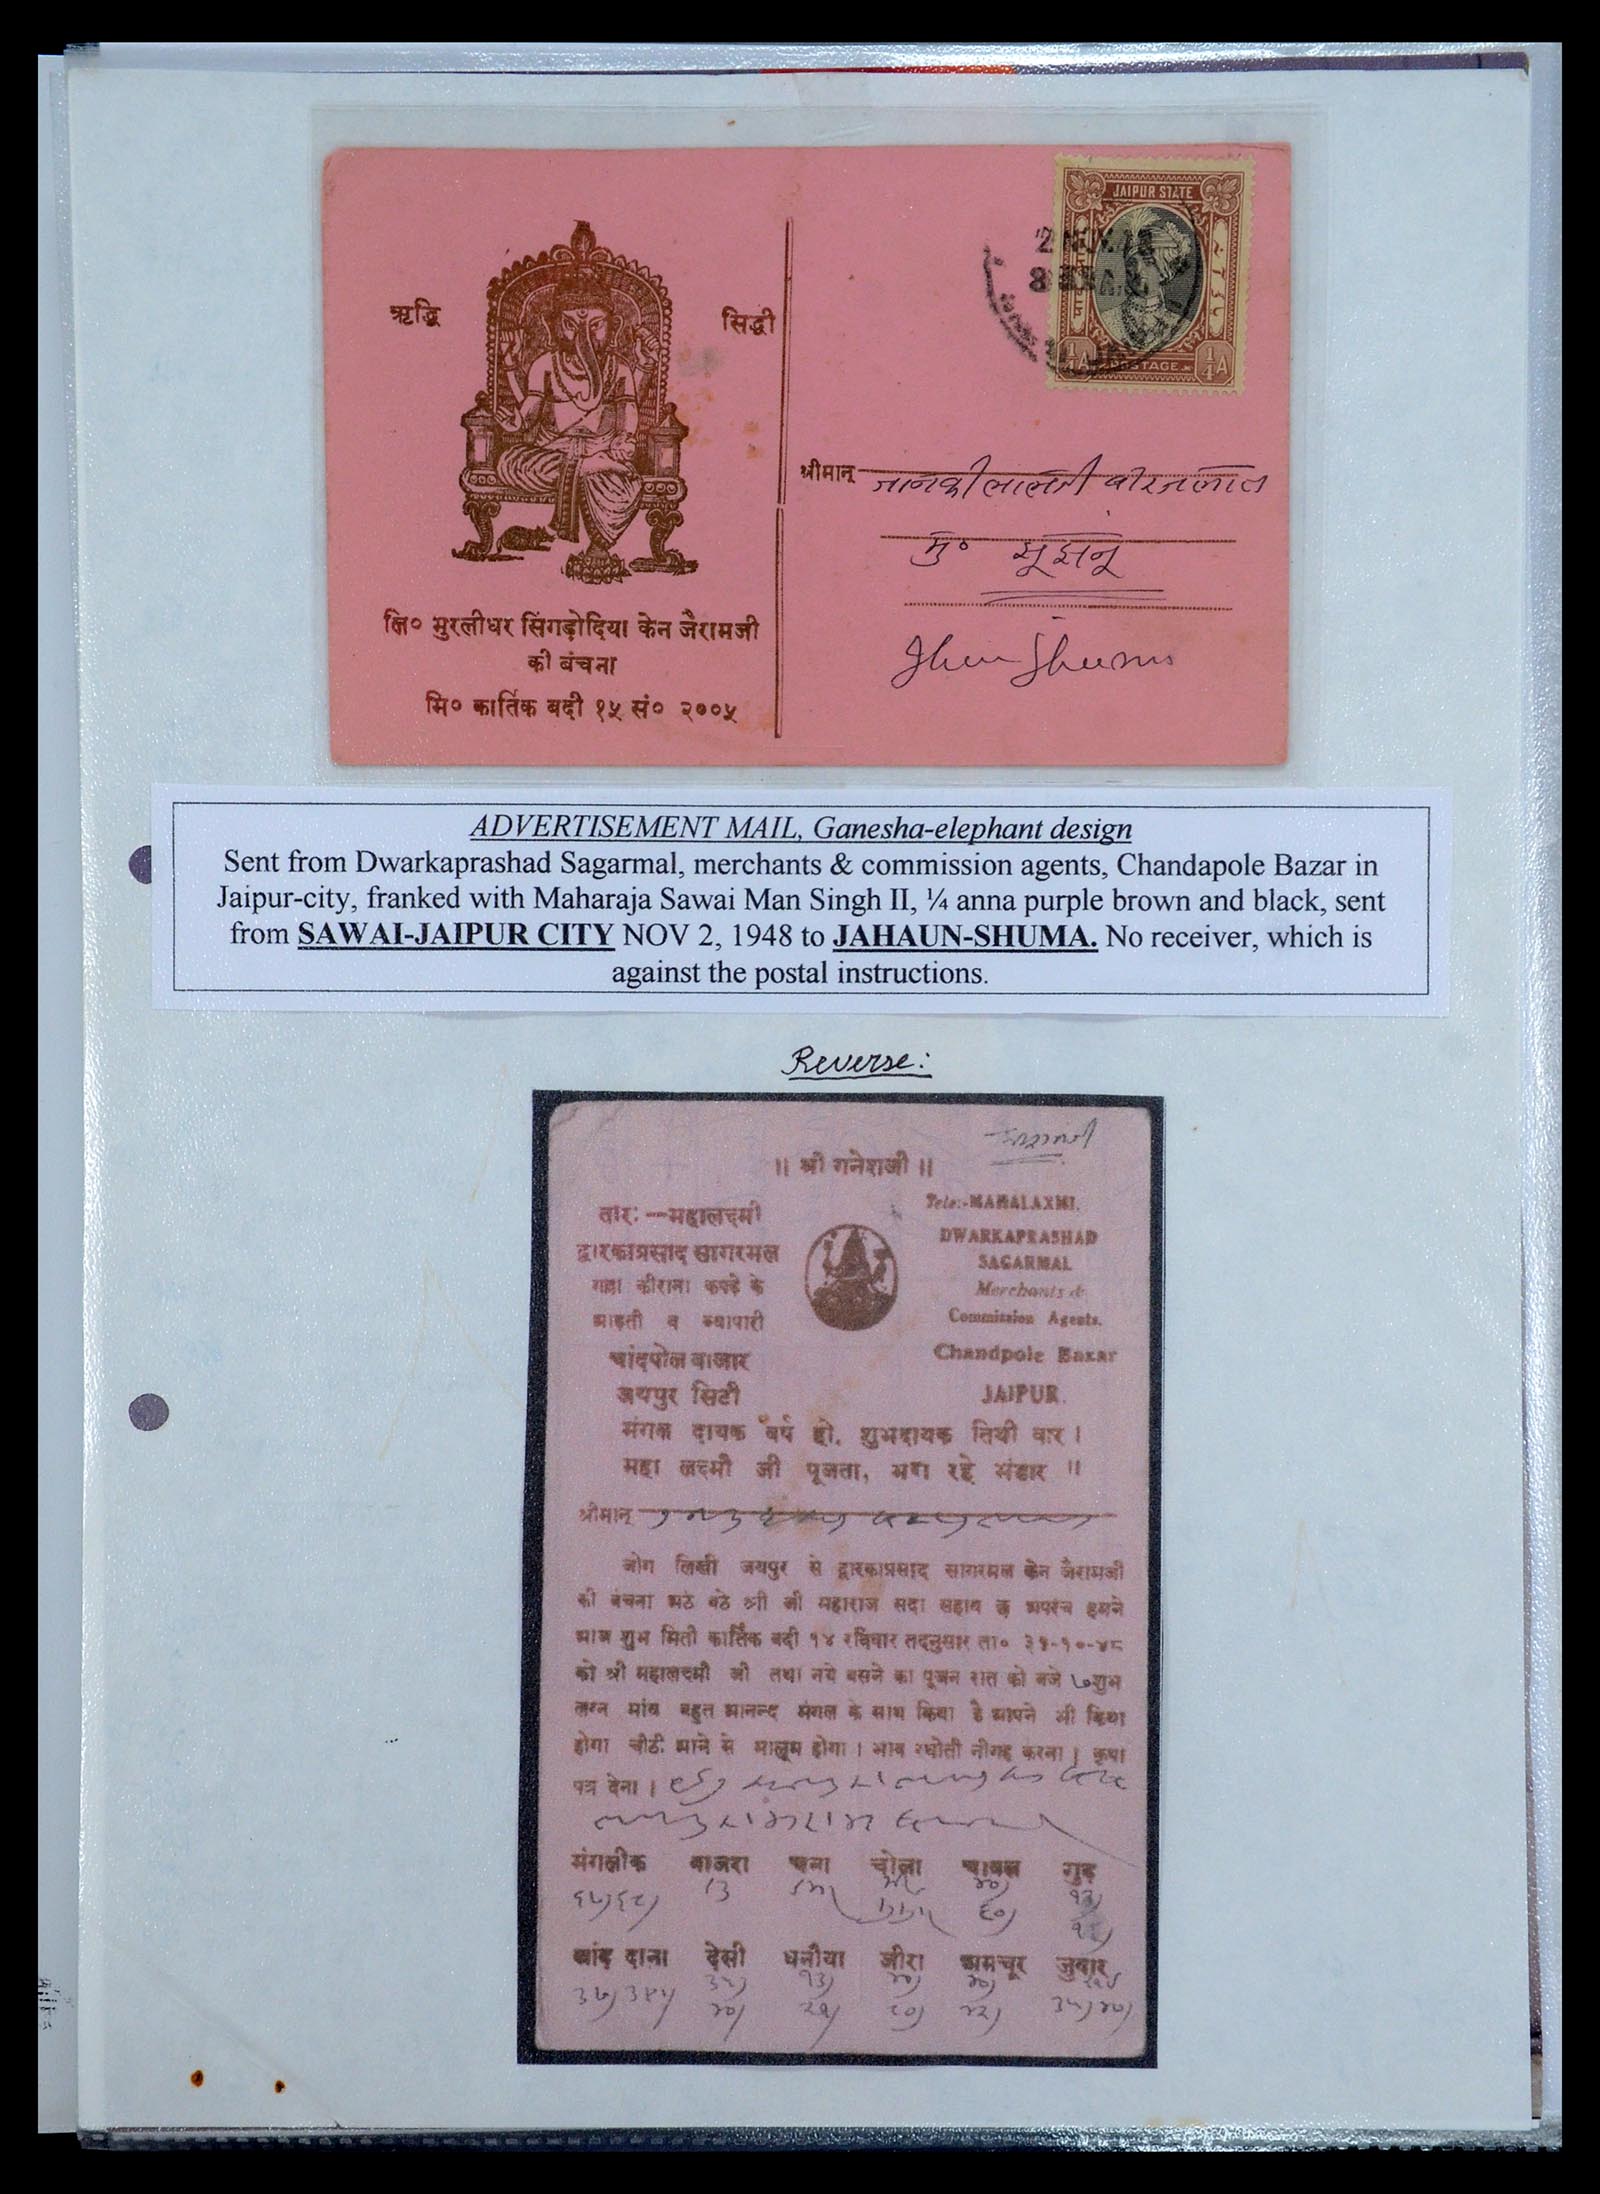 ऋद्धि
सिद्धी
लि० मुरलीधर सिंगड़ोदिया केन जैरामजी
की बंचना
मि० कार्तिक बदी १५ सं० २००५
JAIPUR STATE
1/4 A POSTAGE 1/4 A
श्रीमान्
मु०
ADVERTISEMENT MAIL, Ganesha-elephant design
Sent from Dwarkaprashad Sagarmal, merchants & commission agents, Chandapole Bazar in
Jaipur-city, franked with Maharaja Sawai Man Singh II, ¼ anna purple brown and black, sent
from SAWAI-JAIPUR CITY NOV 2, 1948 to JAHAUN-SHUMA. No receiver, which is
against the postal instructions.
Reverse:
॥ श्री गनेशजी ॥
तार:—महालक्ष्मी
द्वारकाप्रसाद सागरमल
गल्ला कीराना कपड़े के
आढ़ती व व्यापारी
चांदपोल बाजार
जयपुर सिटी
Tele:-MAHALAXMI.
DWARKAPRASHAD
SAGARMAL
Merchants &
Commission Agents.
Chandpole Bazar
JAIPUR.
मंगल दायक वर्ष हो, शुभदायक तिथी वार ।
महा लक्ष्मी जी पूजता, भरा रहे भंडार ॥
श्रीमान्
जोग लिखी जयपुर से द्वारकाप्रसाद सागरमल केन जैरामजी
की बंचना अठे बठे श्री जी महाराज सदा सहाय छ अपरंच हमने
आज शुभ मिती कार्तिक बदी १४ रविवार तद्नुसार ता० ३१-१०-४८
को श्री महालक्ष्मी जी तथा नये बसने का पूजन रात को बजे ७ शुभ
लग्न मांय बहुत आनन्द मंगल के साथ किया है आपने भी किया
होगा चीठी आने से मालूम होगा । भाव रघोती नीगह करना । कृपा
पत्र देना ।
मंगलीक बाजरा चना चोला चावल गुड़
चांद दाना देसी धनीया जीरा अमचूर जुवार